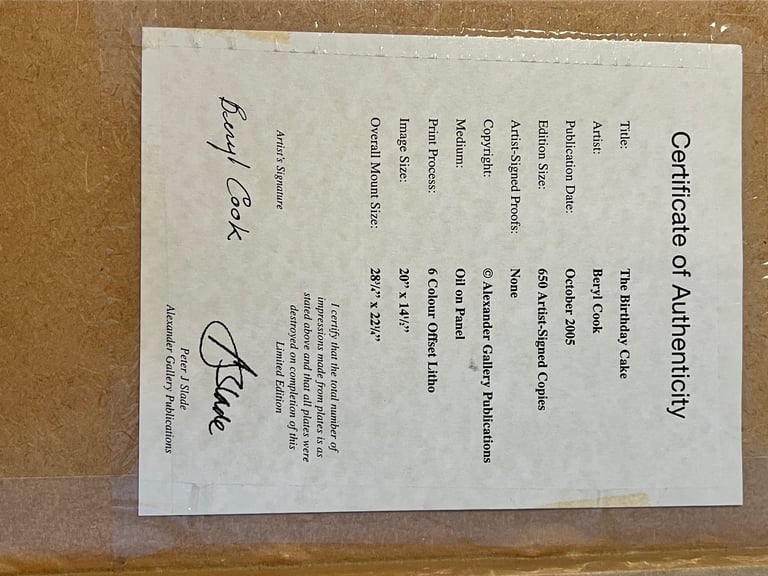 Certificate of Authenticity
Title: The Birthday Cake
Artist: Beryl Cook
Publication Date: October 2005
Edition Size: 650 Artist-Signed Copies
Artist-Signed Proofs: None
Copyright: © Alexander Gallery Publications
Medium: Oil on Panel
Print Process: 6 Colour Offset Litho
Image Size: 20” x 14½”
Overall Mount Size: 28¾” x 22¼”
I certify that the total number of
impressions made from plates is as
stated above and that all plates were
destroyed on completion of this
Limited Edition
Artist's Signature
Beryl Cook
A Slade
Peter J Slade
Alexander Gallery Publications